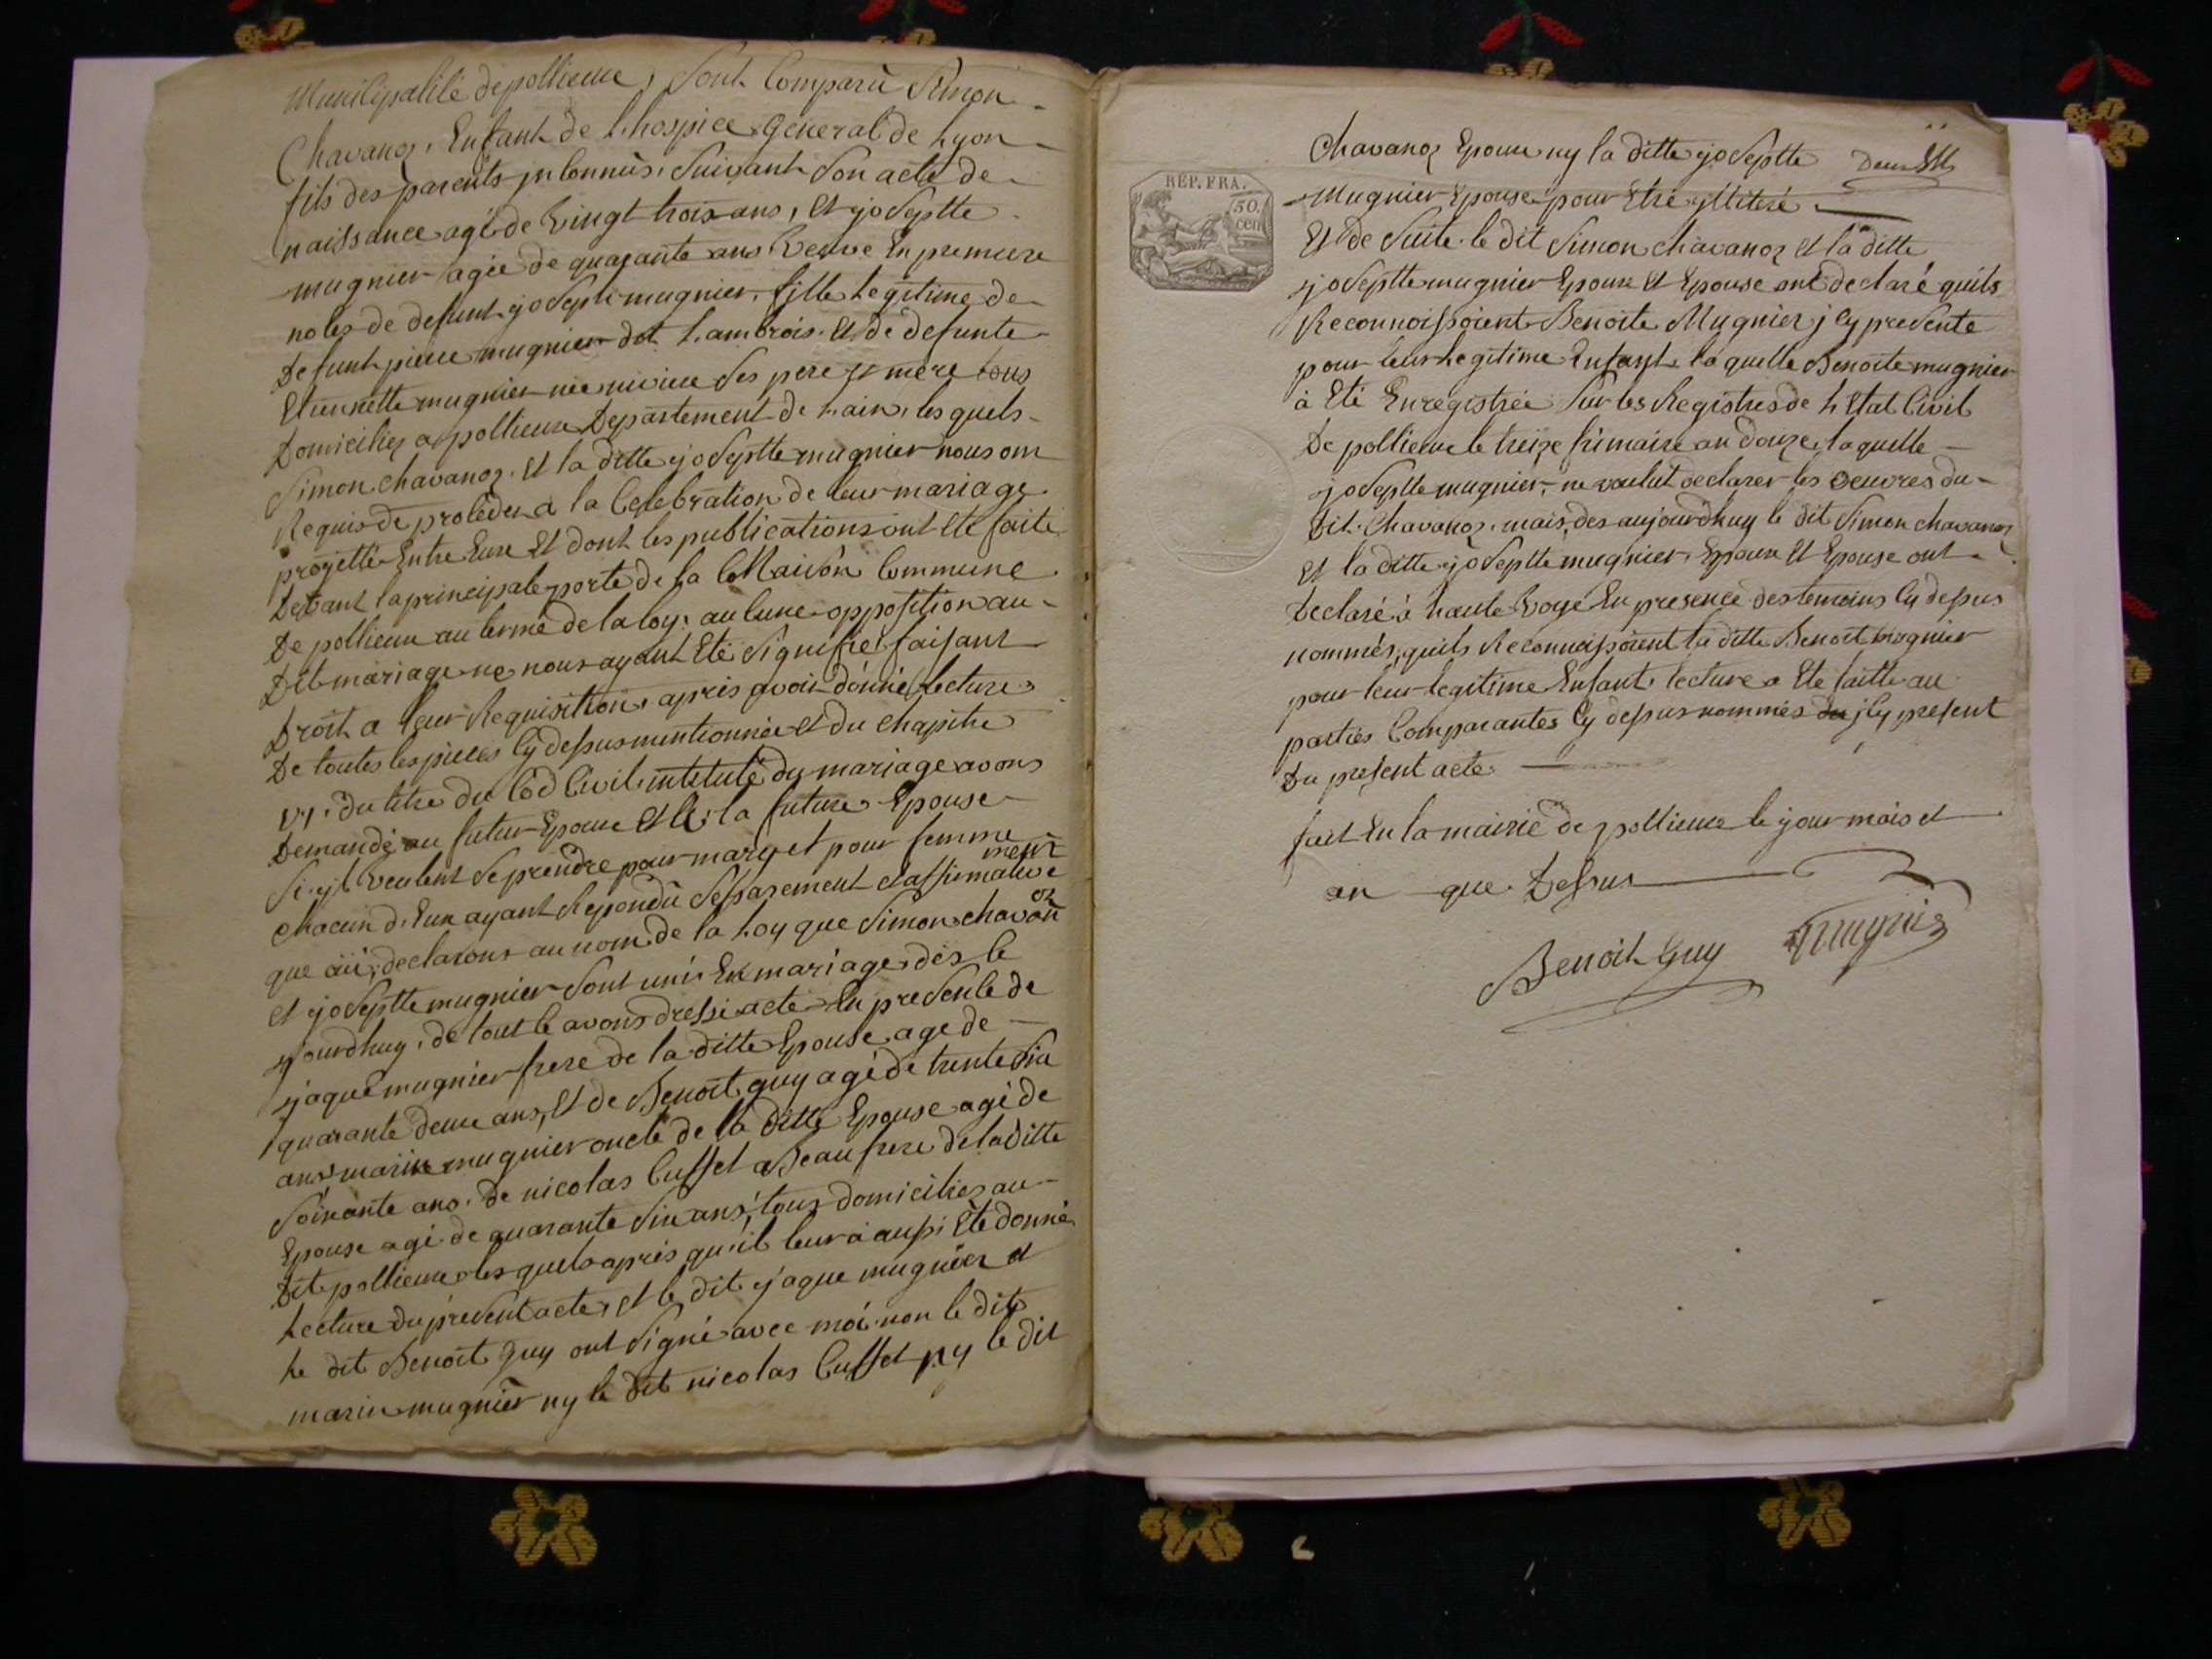 Municipalité de pollieux, Sont Comparü Simon
Chavanoz, Enfant de l. hospice general de Lyon
fils des parents jnConnüs, Suivant Son acte de
naissance agé de Vingt trois ans, Et joSeptte
mugnier agée de quarante ans Veuve En premiere
noces de defunt joSepte mugnier, fille Legitime de
Defunt pierre mugnier dit L.ambrois. Et de defunte
Etiennette mugnier née Ses pere et mere tous
Domiciliez a pollieux Departement de L.ain, les quels
Simon Chavanoz. Et la ditte joSeptte mugnier nous ont
Requis de proceder a la Celebration de leur mariage
projetté Entre Eux Et dont les publications ont Eté faite
Devant la principale porte de la Maison Commune
De pollieux au terme de la loy, aucune opposition au
Dit mariage ne nous ayant Eté Signifié, faisant
Droit a leur Requisition, après avoir donné lecture
De toutes les pieces Cy dessus mentionnée et du Chapitre
VI. du titre du Cod Civil intitulé du mariage avons
Demandé au futur Epoux Et a la future Epouse
Si jls veulent Se prendre pour mary et pour femme
ment
Chacun d. Eux ayant Repondü Separement et affirmative
oz
que oüi, declarons au nom de la Loy que Simon chavan
et joSeptte mugnier Sont unis En mariage, dès le
jourdhuy, de tout ce avons dressé acte En preSence de
jaque mugnier frere de la ditte Epouse age de
quarante deux ans, Et de Benoit guy agé de trente Six
ans, marin mugnier oncle de la ditte Epouse agé de
Soixante ans. de nicolas Cusset a Beau frere de la ditte
Epouse agé de quarante Six ans, tous domiciliés au
Dit pollieux les quels après qu'il leur a aussi Eté donné
Lecture du present acte, Et le dit jaque mugnier et
Le dit Benoit guy ont Signé avec moi non le dit
marin mugnier ny le dit nicolas Cusset ny le dit
Chavanoz Epoux ny la ditte joSeptte
mugnier Epouse pour Etre jllitéré
Et de Suite. le dit Simon chavanoz Et la ditte
joSeptte mugnier Epoux Et Epouse ont declaré quils
Reconnoissoient Benoite Mugnier jcy preSente
pour leur Legitime Enfant la quelle Benoite mugnier
à Eté Enregistrée Sur les Registres de L Etat Civil
De pollieux le treize frimaire an douze, laquelle
joSeptte mugnier, ne voulut declarer les oeuvres du
Dit. Chavanoz. mais, des aujourdhuy le dit Simon chavanoz
Et la ditte joSeptte mugnier, Epoux Et Epouse ont
Declaré à haute Voye En presence des temoins Cy dessus
nommés, quils Reconnaissoient la ditte Benoit mugnier
pour leur legitime Enfant, lecture a Eté faitte au
parties Comparantes Cy dessus nommés du jCy present
Du present acte
fait En la mairie de pollieux le jour mois et
an que Dessus
Benoit Guy mugnier
REP. FRA.
50.
cen